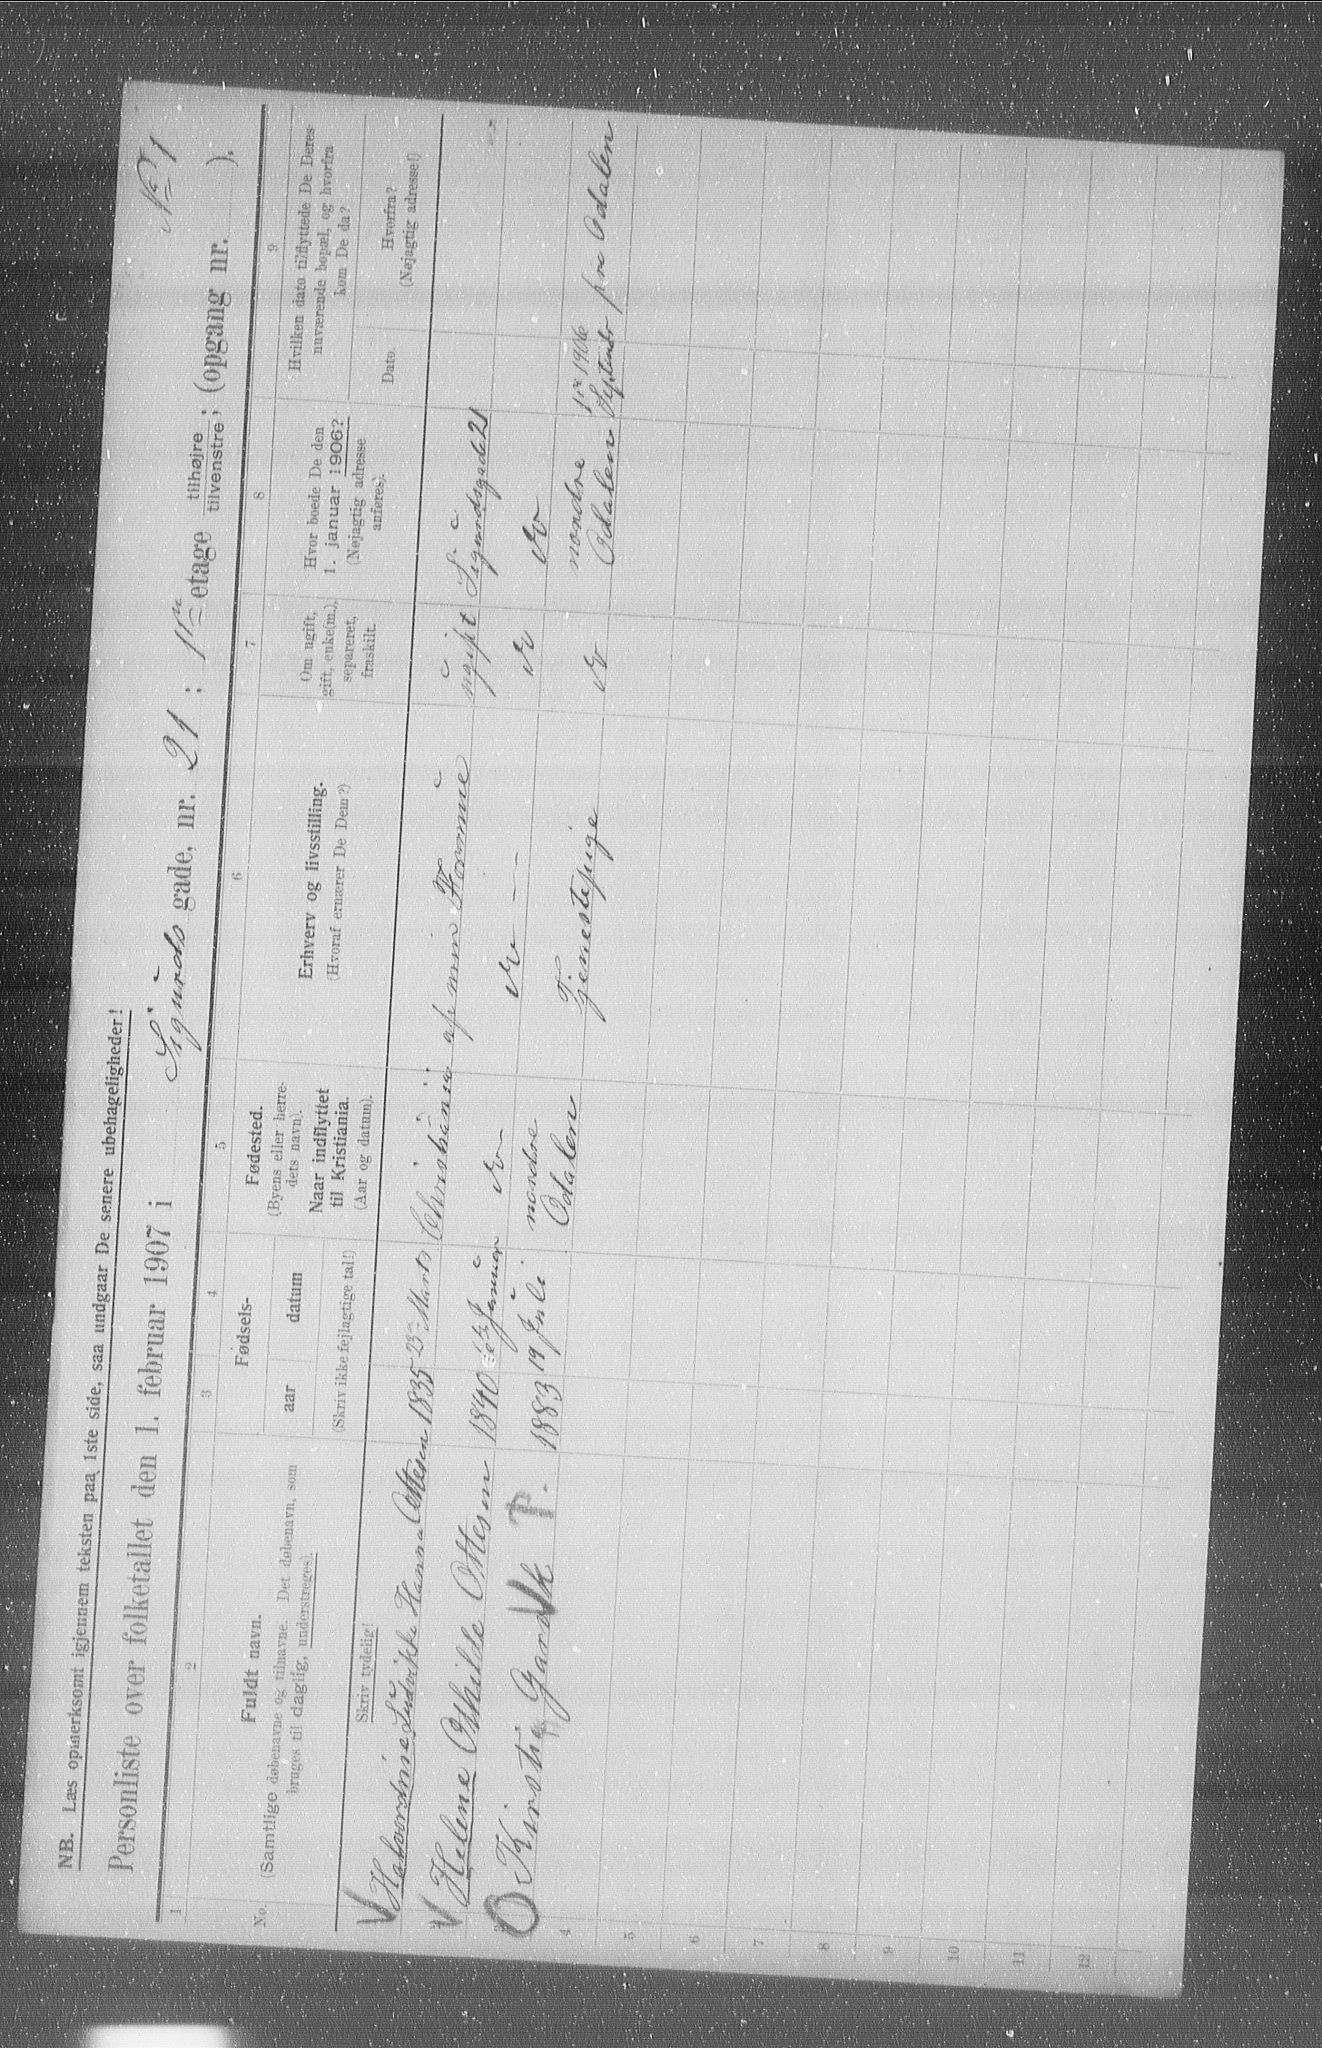 NB. Læs opmerksomt igjennem teksten paa 1ste side, saa undgaar De senere ubehageligheder!
No 1
Personliste over folketallet den 1. februar 1907 i Sigurds gade, nr. 21 ; 1ste etage tilhøjre ; tilvenstre ; (opgang nr. ).
1 2 3 4 5 6 7 8 9
No.
Fuldt navn.
(Samtlige døbenavne og tilnavne. Det døbenavn, som
bruges til daglig, understreges).
Skriv tydelig!
Fødsels-
aar datum
(Skriv ikke fejlagtige tal!)
Fødested.
(Byens eller herre-
dets navn).
Naar indflyttet
til Kristiania.
(Aar og datum).
Erhverv og livsstilling.
(Hvoraf ernærer De Dem?)
Om ugift,
gift, enke(m.),
separeret,
fraskilt.
Hvor boede De den
1. januar 1906?
(Nøjagtig adresse
anføres).
Hvilken dato tilflyttede De Deres
nuværende bopæl, og hvorfra
kom De da?
Dato.
Hvorfra?
(Nøjagtig adresse!)
Ludvikke Hanna Ottesen 1835 23 Marts Christiania af min Formue ugift Sigurdsgade 21
Helene Othilde Ottesen 1840 Januar do do — do do
Kirsti Garvik T. 1883 19 Juli nordre Odalen Tjenestepige do nordre Odalen 1ste September 1906 fra Odalen
4
5
6
7
8
9
10
11
12